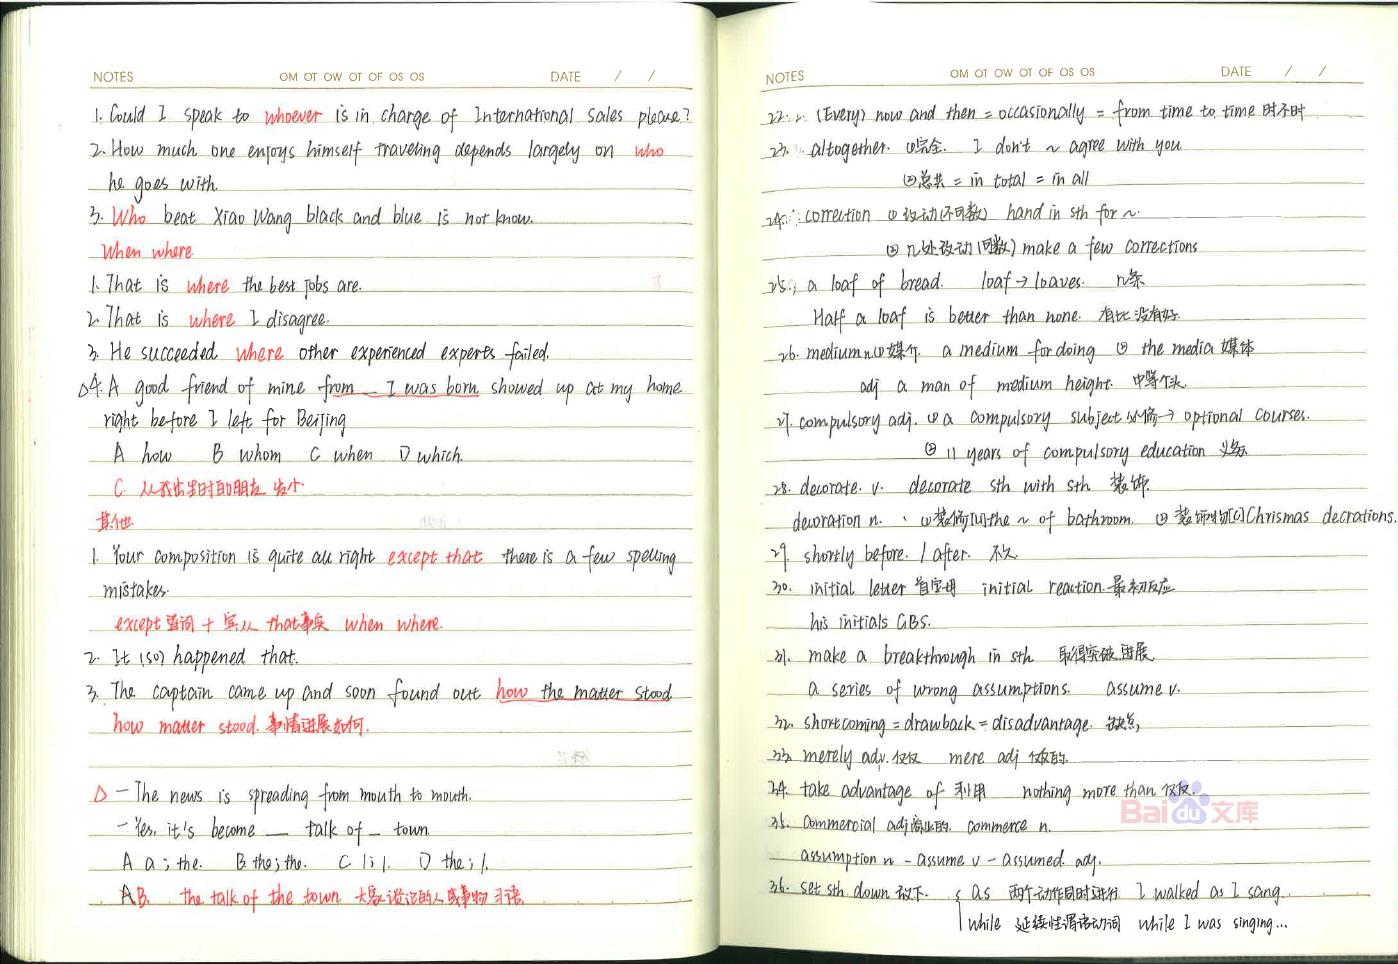 NOTES OM OT OW OT OF OS OS DATE / /
1. Could I speak to whoever is in charge of International Sales please?
2. How much one enjoys himself traveling depends largely on who
he goes with.
3. Who beat Xiao Wang black and blue is not know.
When where
1. That is where the best jobs are.
2. That is where I disagree.
3. He succeeded where other experienced experts failed.
△4. A good friend of mine from __ I was born showed up at my home
right before I left for Beijing
A how B whom C when D which.
C 从我出生时的朋友 发小
其他
1. Your composition is quite all right except that there is a few spelling
mistakes.
except 疑词 + 宾从 that事实 when where.
2. It (so) happened that.
3. The captain came up and soon found out how the matter stood
how matter stood. 事情进展如何.
△ - The news is spreading from mouth to mouth.
- Yes, it's become __ talk of _ town.
A a ; the. B the ; the. C / ; /. D the ; /.
AB. the talk of the town 大家谈论的人或事物 习语.
NOTES OM OT OW OT OF OS OS DATE / /
22. (Every) now and then = occasionally = from time to time 时不时
23. altogether. ①完全. I don't ~ agree with you
②总共 = in total = in all
24. correction ①改动(不可数) hand in sth for ~.
②几处改动(可数) make a few corrections
25. a loaf of bread. loaf → loaves. n条
Half a loaf is better than none. 有比没有好.
26. medium n.①媒介. a medium for doing ② the media 媒体
adj a man of medium height. 中等个头.
27. compulsory adj. ①a compulsory subject 必修 → optional courses.
② 11 years of compulsory education 义务
28. decorate. v. decorate sth with sth 装饰.
decoration n. ①装修[U] the ~ of bathroom. ② 装饰物[C] Chrismas decrations.
29. shortly before. / after. 不久
30. initial letter 首字母 initial reaction. 最初反应
his initials GBS.
31. make a breakthrough in sth 取得突破进展
a series of wrong assumptions. assume v.
32. shortcoming = drawback = disadvantage. 缺点,
33. merely adv. 仅仅 mere adj 仅仅的
34. take advantage of 利用 nothing more than 仅仅.
Baidu文库
35. commercial adj 商业的. commerce n.
assumption n - assume v - assumed. adj.
36. set sth down 放下. { as 两个动作同时进行 I walked as I sang.
while 延续性谓语动词 while I was singing...